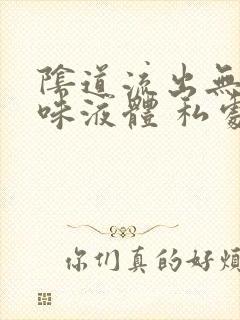 陰道流出無
味液體 私處
你们真的好煩